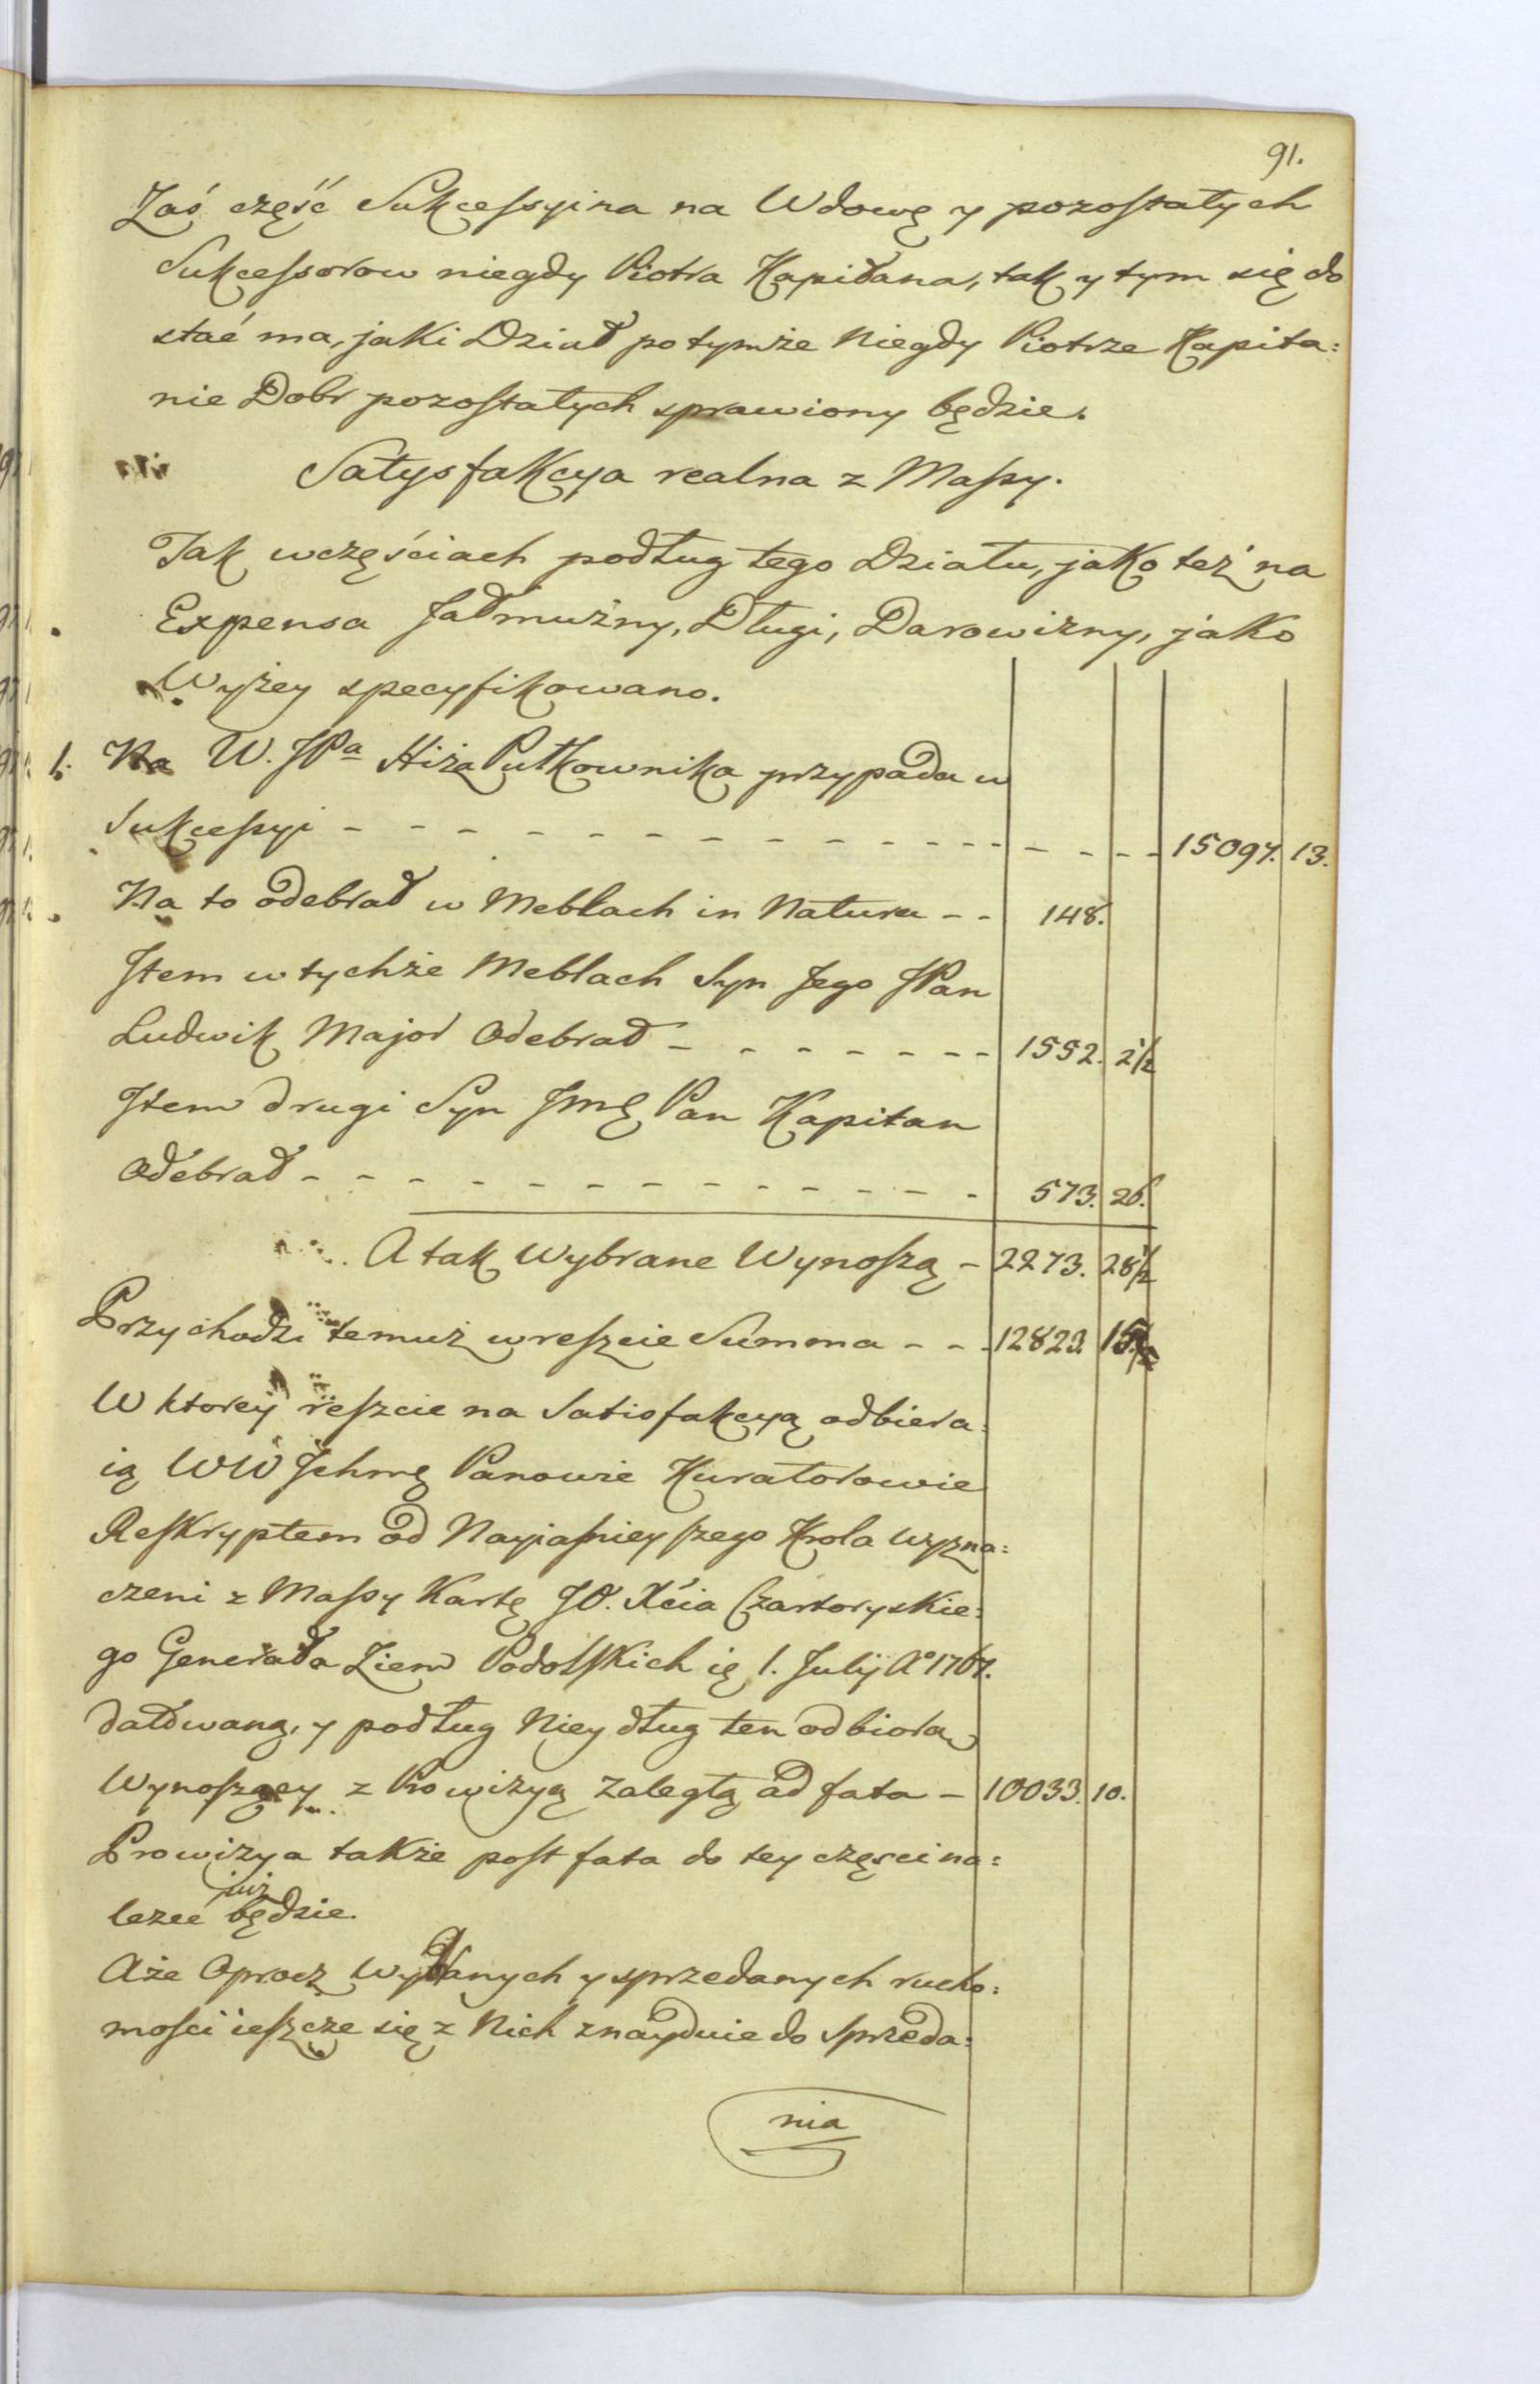 91.
Zaś część Sukcessyina na Wdowę y pozostałych
Sukcessorow niegdy Piotra Kapitana, tak y tym się do
stać ma, jaki Dział po tymże Niegdy Piotrze Kapita=
nie Dobr pozostałych sprawiony będzie.
Satysfakcya realna z Massy.
Tak w częściach podług tego Działu, jako też na
Expensa Jałmużny, Długi, Darowizny, jako
Wyżey specyfikowano.
1. Na W. JPa Hiża Pułkownika przypada w
Sukcessyi - - - - - - - - - - - - - - - 15097. 13.
Na to odebrał w Meblach in Natura - - 148.
Item w tychże Meblach Syn Jego JPan
Ludwik Major Odebrał - - - - - - - 1552. 2 1/2
Item drugi Syn Jmę Pan Kapitan
Odebrał - - - - - - - - - - - - - 573. 26.
A tak Wybrane Wynoszą - 2273. 28 1/2
Przychodzi temuż w reszcie Summa - - - 12823.
W ktorey reszcie na Satisfakcyą odbiera=
ią WW Jchmę Panowie Kuratorowie
Reskryptem od Nayjaśnieyszego Krola Wyzna=
czeni z Massy Kartę JO. Xcia Czartoryskie=
go Generała Ziem Podolskich 1. Julij Ao 1767.
datowaną, y podług Niey dług ten odbiorą
Wynoszący z Prowizyą zaległą ad fata - 10033. 10.
Prowizya także post fata do tey częsci na=
lezeć już będzie.
Aże Oprocz Wydanych y sprzedanych rucho=
mosci ieszcze się z Nich znayduie do Sprzeda=
nia